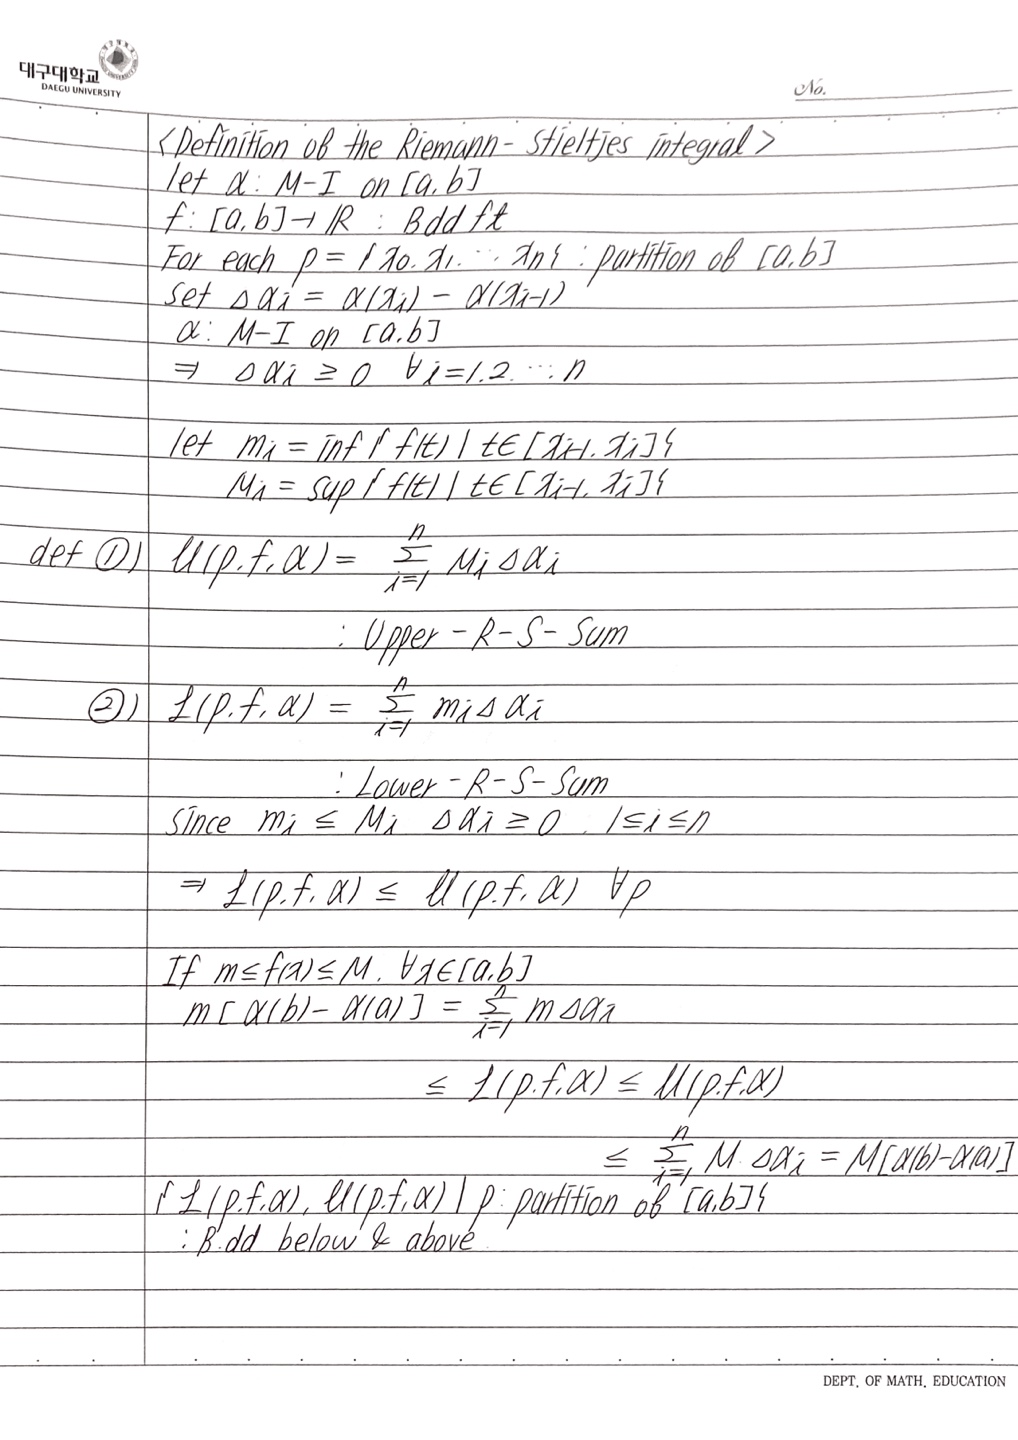 대구대학교
DAEGU UNIVERSITY
No.
<Definition of the Riemann-Stieltjes integral>
let α: M-I on [a,b]
f: [a,b]→ℝ : Bdd ft
For each p = {x₀. x₁. ⋯ xₙ} : partition of [a,b]
set Δαᵢ = α(xᵢ) - α(xᵢ₋₁)
α: M-I on [a,b]
⇒ Δαᵢ ≥ 0 ∀i=1.2. ⋯ n
let mᵢ = inf{ f(t) | t∈[xᵢ₋₁. xᵢ]}
Mᵢ = sup{ f(t) | t∈[xᵢ₋₁. xᵢ]}
def ①) U(p.f,α) = Σᵢ₌₁ⁿ MᵢΔαᵢ
: Upper-R-S-Sum
②) L(p.f,α) = Σᵢ₌₁ⁿ mᵢΔαᵢ
: Lower-R-S-Sum
since mᵢ ≤ Mᵢ Δαᵢ ≥ 0. 1≤i≤n
⇒ L(p.f,α) ≤ U(p.f,α) ∀p
If m≤f(x)≤M. ∀x∈[a,b]
m[α(b)-α(a)] = Σᵢ₌₁ⁿ mΔαᵢ
≤ L(p.f,α) ≤ U(p.f,α)
≤ Σᵢ₌₁ⁿ M.Δαᵢ = M[α(b)-α(a)]
{L(p.f,α), U(p.f,α) | p: partition of [a,b]}
: B.dd below & above
DEPT. OF MATH. EDUCATION